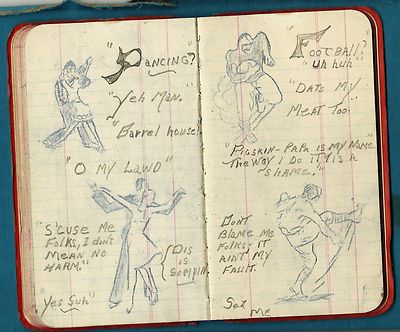 "Dancing?"
"Yeh Man."
"Barrel house!
"O MY LAWD"
"S'CUSE ME
FOLKS, I don't
MEAN NO
HARM."
"Yes Suh"
"Dis
is
"FOOTBALL?"
"Uh huh"
"DATS MY
MEAT TOO."
"PIGSKIN-PAPA IS MY NAME
THE WAY I DO IT, IS A
SHAME."
DON'T
BLAME ME
FOLKS; IT
AIN'T MY
FAULT.
Set
Me